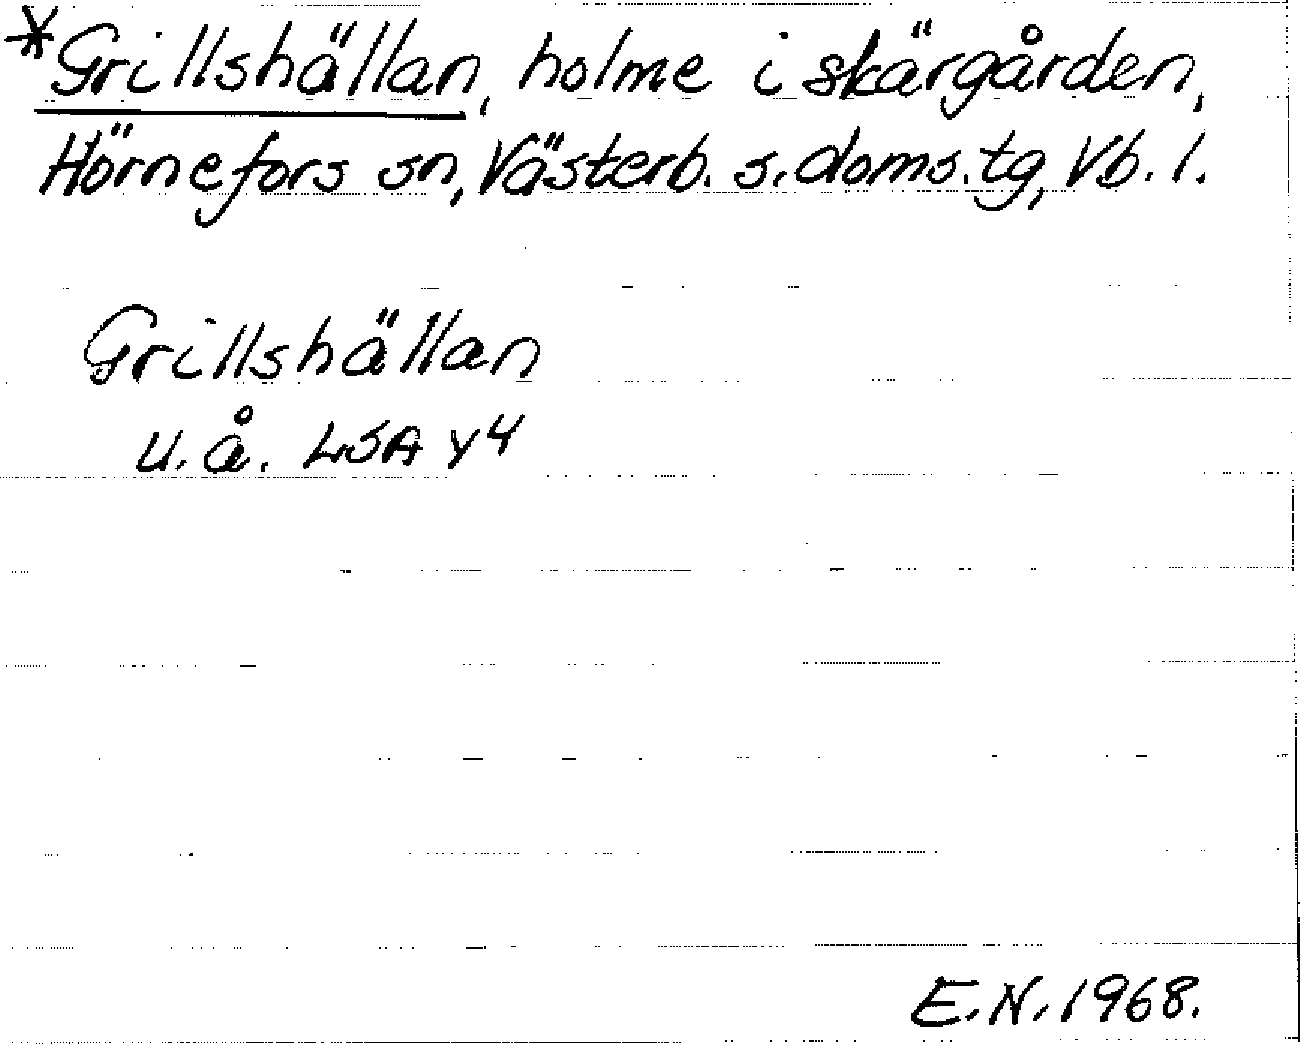 *Grillshällan, holme i skärgården,
Hörnefors sn, Västerb. s. doms. tg, Vb. l.
Grillshällan
u. å. LSA Y4
E.N. 1968.